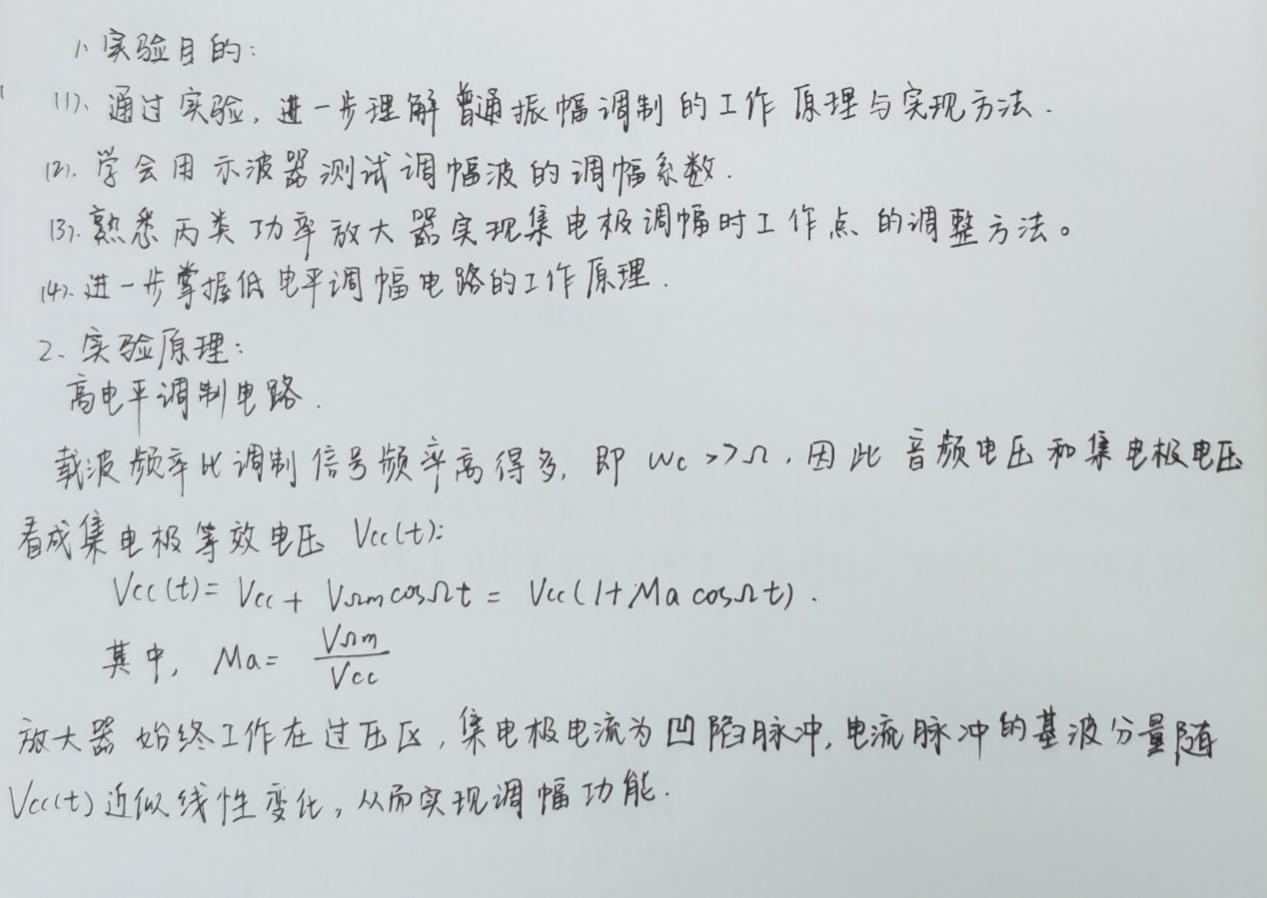 1、实验目的:
(1)、通过实验,进一步理解普通振幅调制的工作原理与实现方法.
(2).学会用示波器测试调幅波的调幅系数.
(3).熟悉丙类功率放大器实现集电极调幅时工作点的调整方法。
(4).进一步掌握低电平调幅电路的工作原理.
2、实验原理:
高电平调制电路.
载波频率比调制信号频率高得多,即 ωc>>Ω,因此音频电压和集电极电压
看成集电极等效电压 Vcc(t):
Vcc(t)= Vcc+ VΩmcosΩt = Vcc(1+Ma cosΩt).
其中, Ma= VΩm/Vcc
放大器始终工作在过压区,集电极电流为凹陷脉冲,电流脉冲的基波分量随
Vcc(t)近似线性变化,从而实现调幅功能.